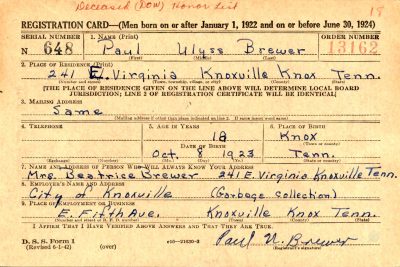 Deceased (DOW) Honor List
18
REGISTRATION CARD—(Men born on or after January 1, 1922 and on or before June 30, 1924)
SERIAL NUMBER 1. NAME (Print) ORDER NUMBER
N 648 Paul Ulyss Brewer 13162
(First) (Middle) (Last)
2. PLACE OF RESIDENCE (Print)
241 E. Virginia Knoxville Knox Tenn.
(Number and street) (Town, township, village, or city) (County) (State)
[THE PLACE OF RESIDENCE GIVEN ON THE LINE ABOVE WILL DETERMINE LOCAL BOARD
JURISDICTION; LINE 2 OF REGISTRATION CERTIFICATE WILL BE IDENTICAL]
3. MAILING ADDRESS
Same
(Mailing address if other than place indicated on line 2. If same insert word same)
4. TELEPHONE 5. AGE IN YEARS 6. PLACE OF BIRTH
18 Knox
DATE OF BIRTH (Town or county)
Oct 8 1923 Tenn.
(Exchange) (Number) (Mo.) (Day) (Yr.) (State or country)
7. NAME AND ADDRESS OF PERSON WHO WILL ALWAYS KNOW YOUR ADDRESS
Mrs. Beatrice Brewer 241 E. Virginia Knoxville Tenn.
8. EMPLOYER'S NAME AND ADDRESS
City of Knoxville (Garbage Collection)
9. PLACE OF EMPLOYMENT OR BUSINESS
E. Fifth Ave. Knoxville Knox Tenn.
(Number and street or R. F. D. number) (Town) (County) (State)
I AFFIRM THAT I HAVE VERIFIED ABOVE ANSWERS AND THAT THEY ARE TRUE.
D. S. S. Form 1
(Revised 6-1-42) (over) 16—21630-2 Paul U. Brewer
(Registrant's signature)